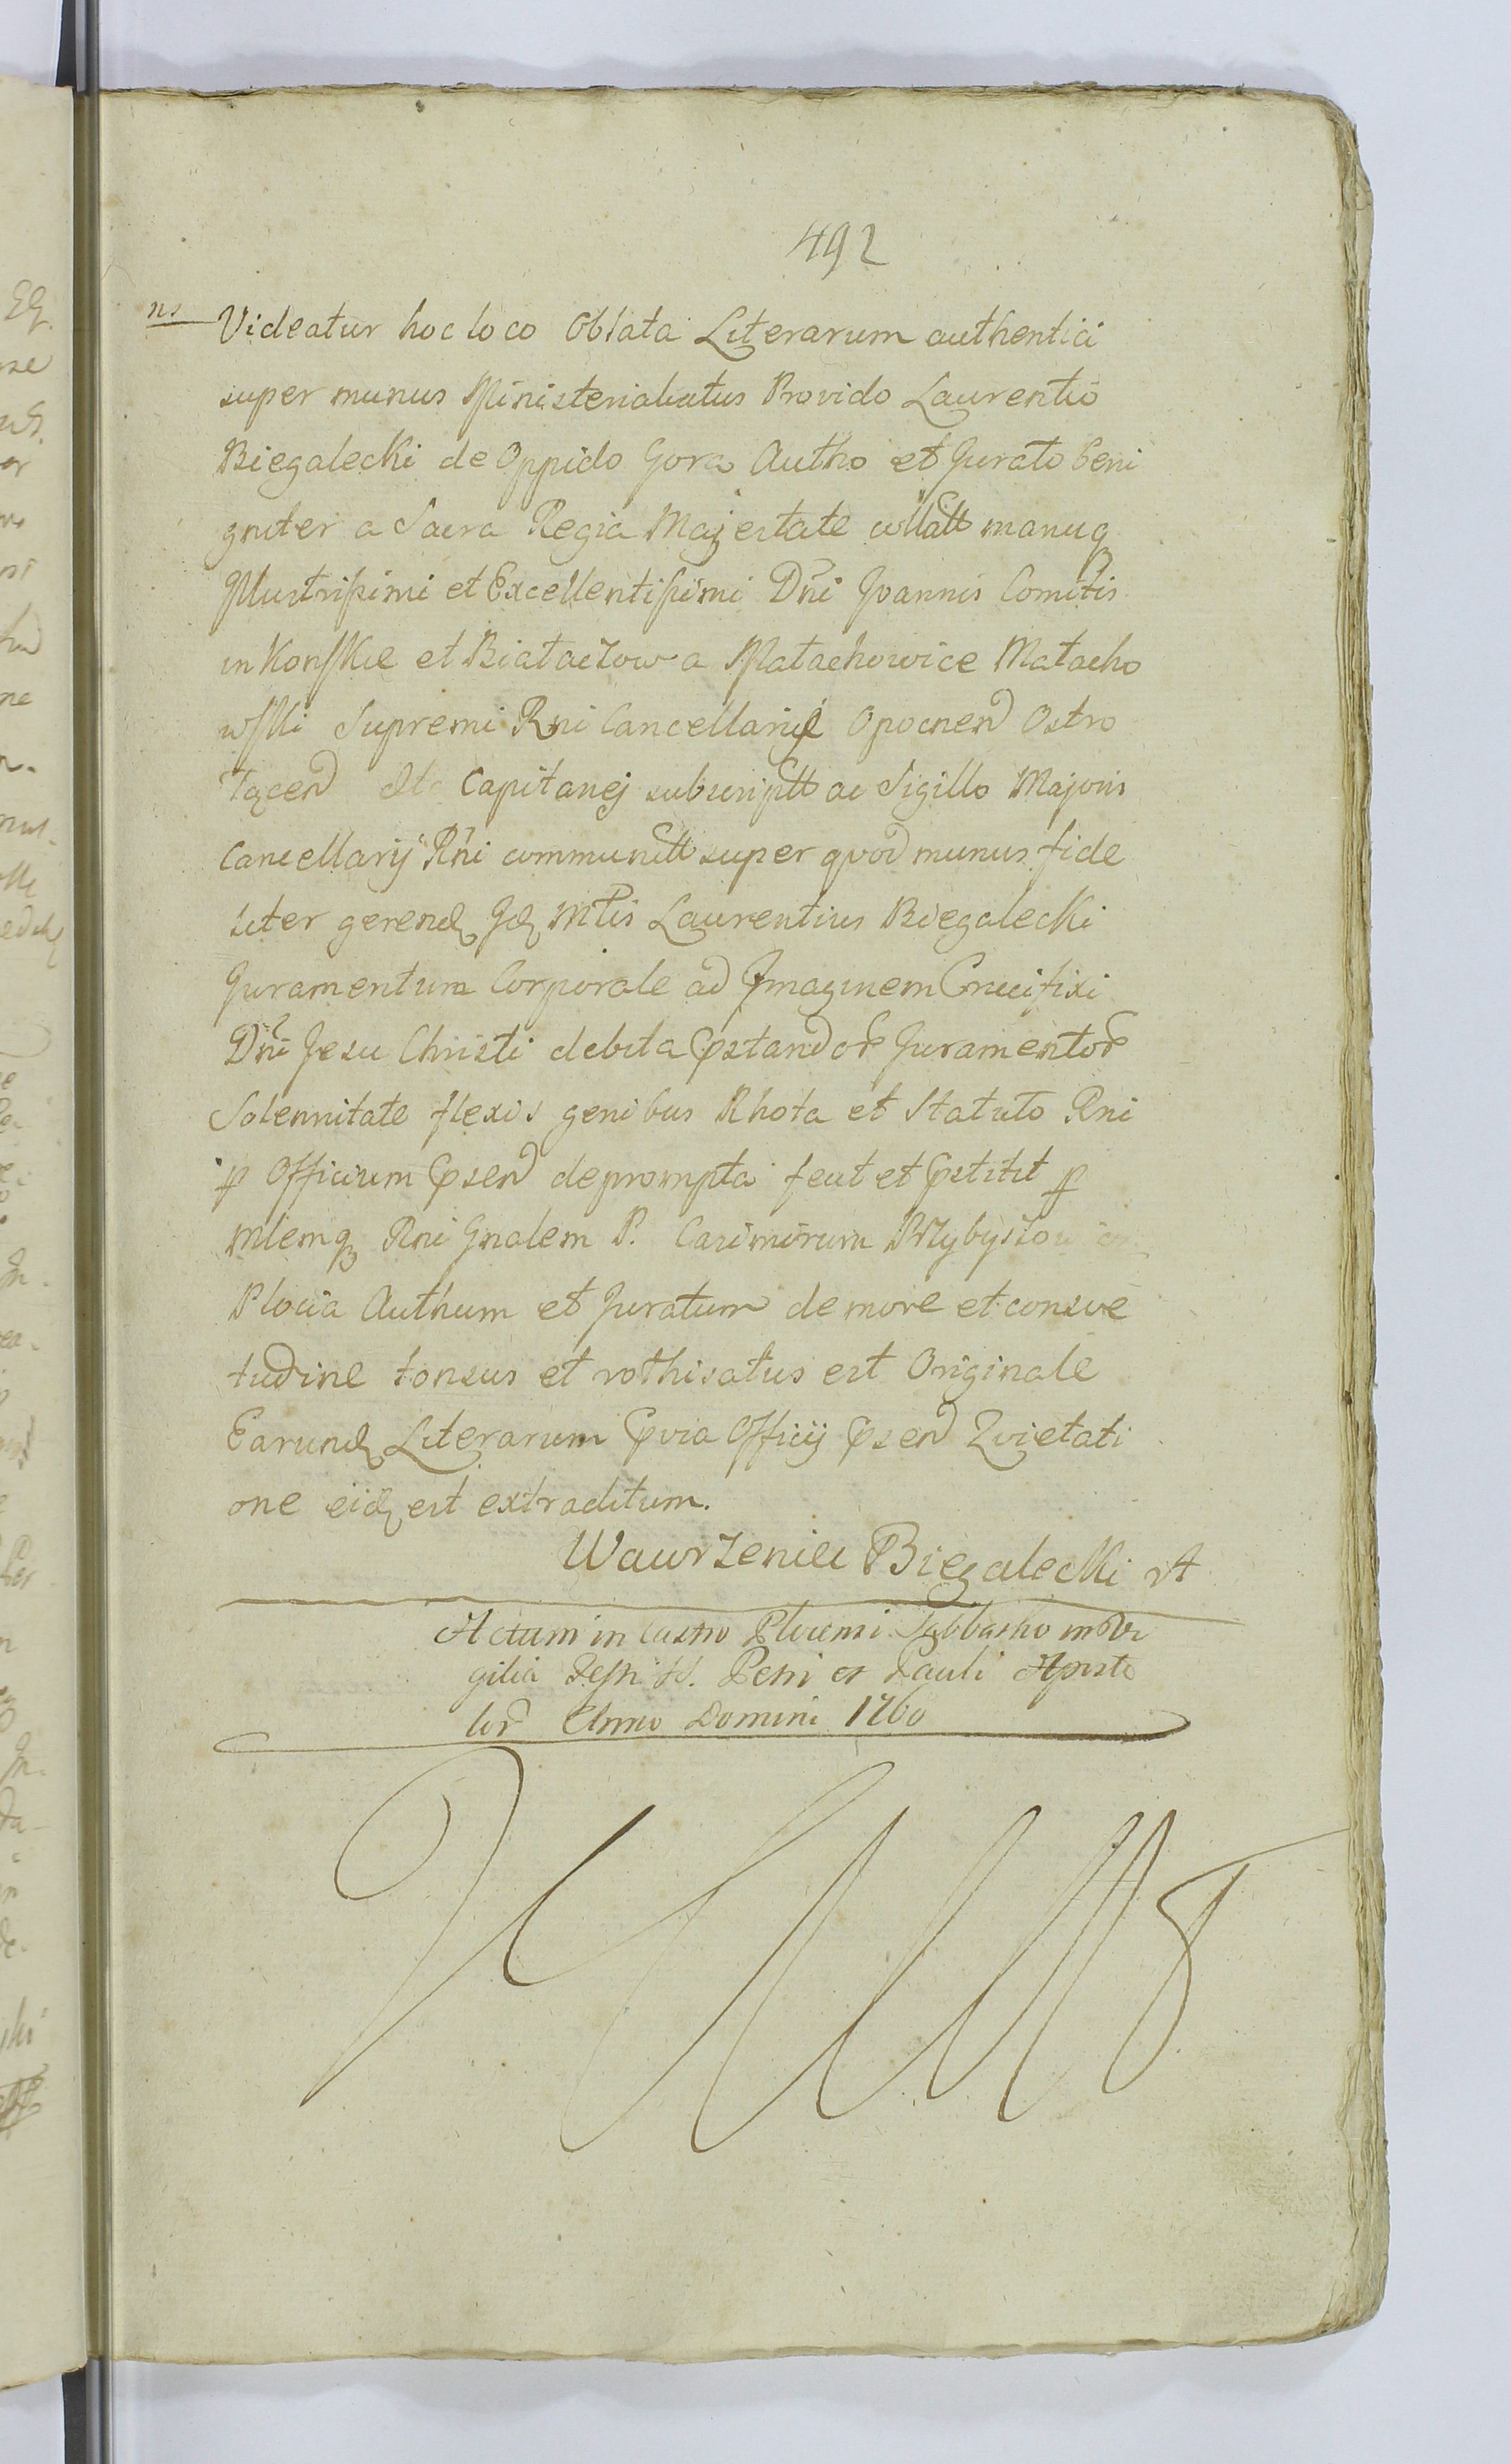 492
ns Videatur hoc loco Oblata Literarum authentici
super munus Ministerialatus Provido Laurentio
Biegalecki de Oppido Gora Autho et Jurato beni
gniter a Sacra Regia Majestate collatt manuq
Illustrißimi et Excellentißimi Dni Joannis Comitis
in Konskie et Białaczow a Małachowice Małacho
wski Supremi Rni Cancellarij Opocnen Ostro
łęcen Etc Capitanej subscriptt ac Sigillo Majoris
Cancellarij Rni communitt super quod munus fide
liter gerend Id Mtis Laurentius Biegalecki
Juramentum Corporale ad Imaginem Crucifixi
Dni Jesu Christi debita pstandor Juramentor
Solennitate flexis genibus Rhota et Statuto Rni
p Officium psen deprompta fecit et pstitit p
Mlemq Rni Gnalem P. Casimirum Przybyszow
Plocia Authum et Juratum de more et consve
tudine tonsus et rothisatus est Originale
Earund Literarum pvia Officij psen Qvietati
one eid est extraditum.
Wawrzeniec Biegalecki
Actum in Castro Plocensi Sabbatho in Vi
gilia Festi SS. Petri et Pauli Aposto
lor Anno Domini 1760